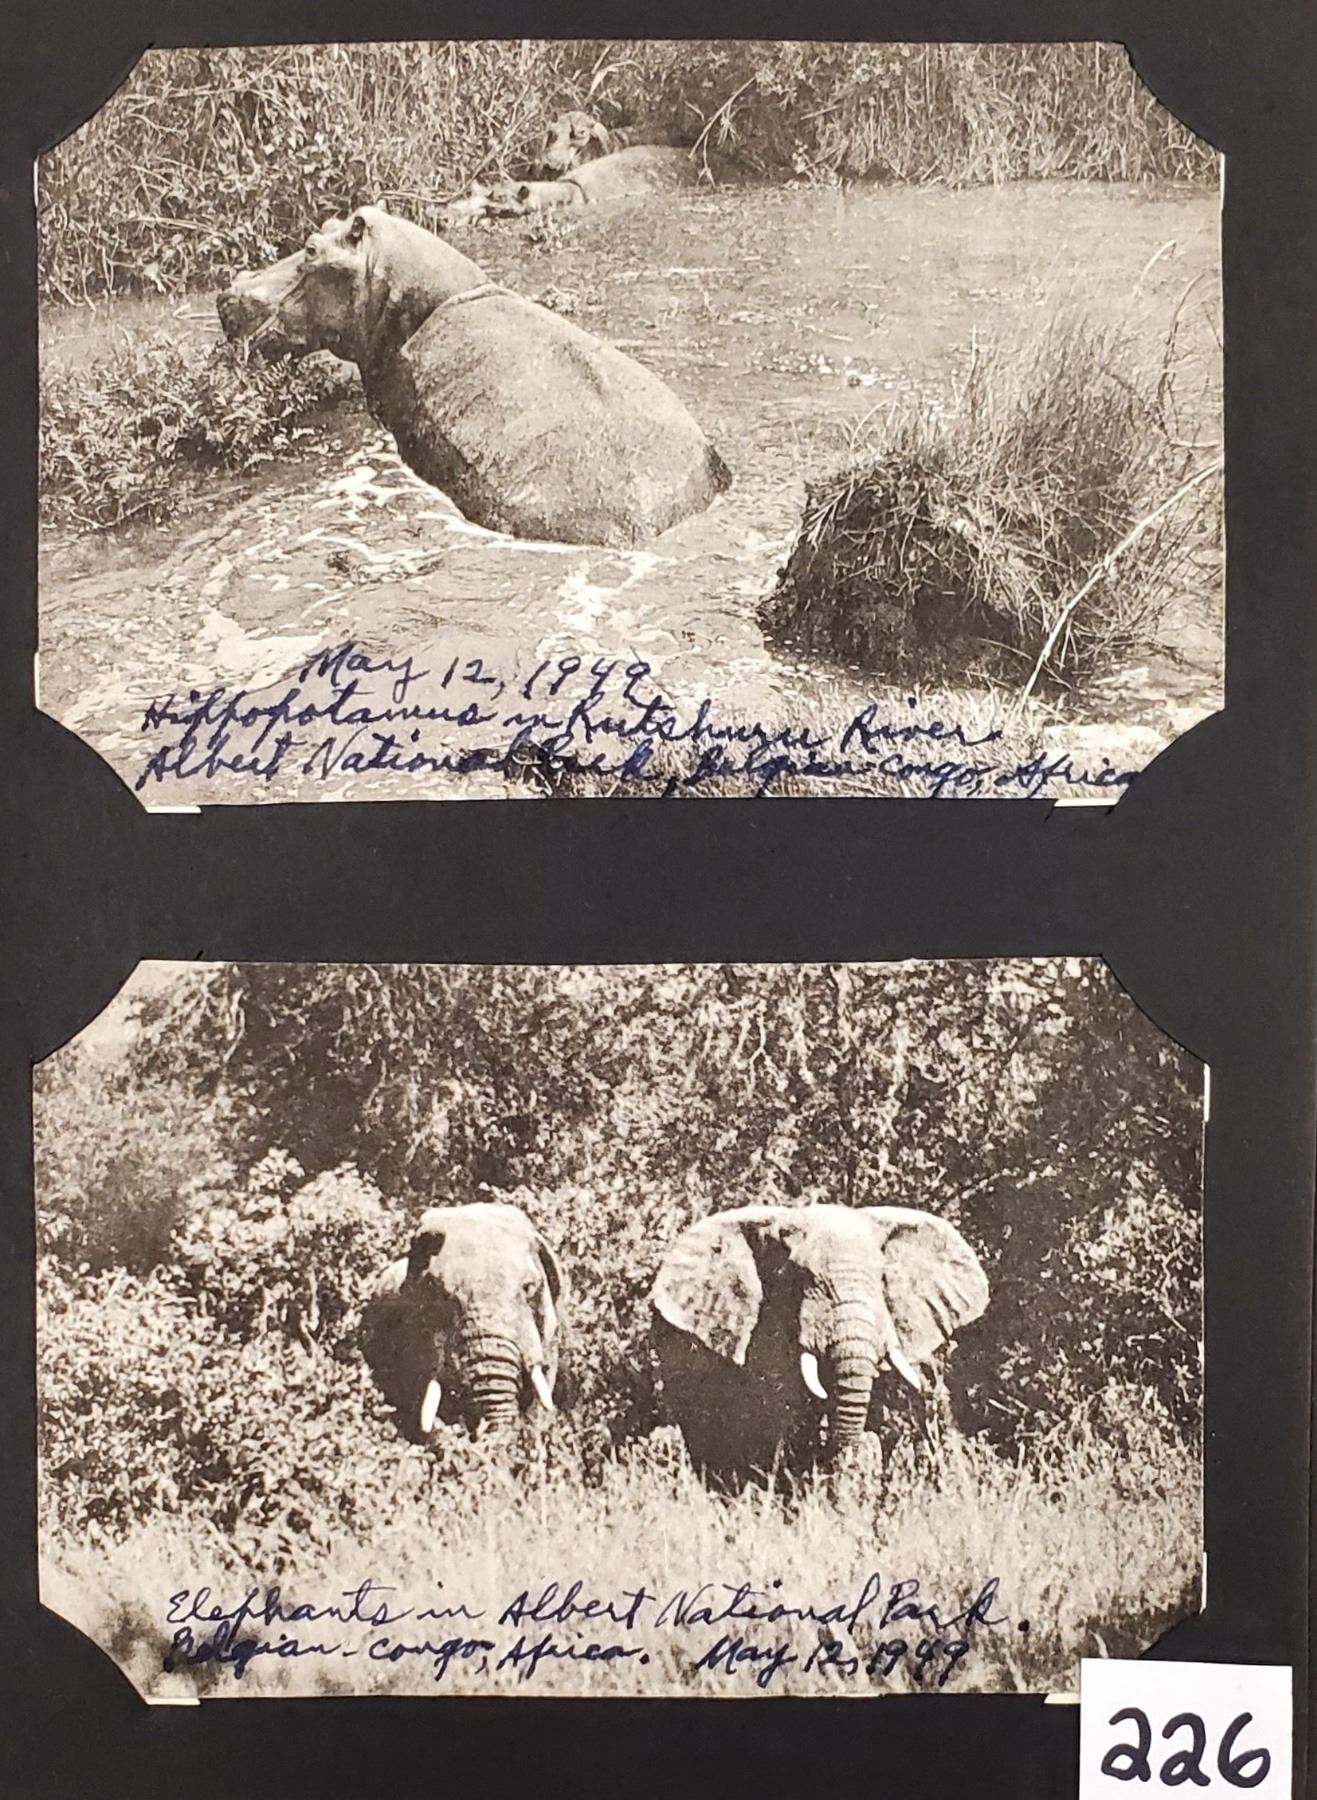 May 12, 1949
Hippopotamus in Rutshuru River
Albert National Park, Belgian-Congo, Africa
Elephants in Albert National Park.
Belgian-Congo, Africa. May 12, 1949
226